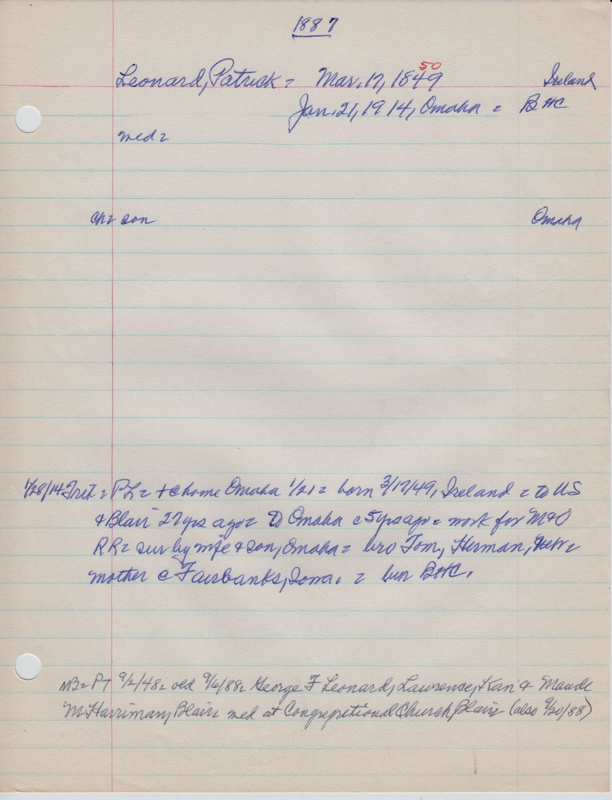 1887
50
Leonard, Patrick = Mar. 17, 1849 Ireland
Jan. 21, 1914, Omaha = BHC
med=
ch= son Omaha
1/28/14 Trib = PL = + @ home Omaha 1/21 = born 3/17/49, Ireland = to US
& Blair 27 yrs ago = to Omaha c 5 yrs ago = work for M&O
RR = sur by wife & son, Omaha = bro Tom, Herman, Nebr =
mother @ Fairbanks, Iowa. = bur BHC.
MB = PT 9/2/48 = old 9/6/88 = George F Leonard, Lawrence, Kan & Maude
M Harriman, Blair = med at Congregational Church, Blair (also 9/20/88)